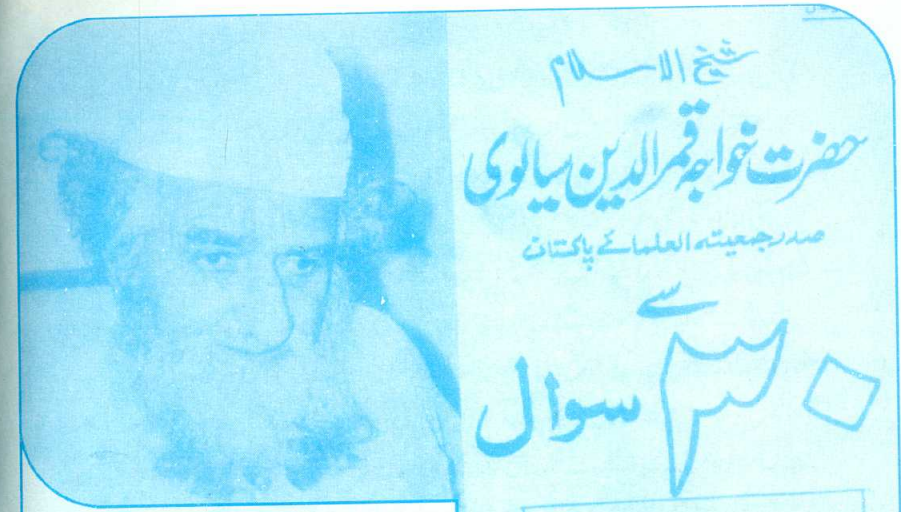 شیخ الاسلام
حضرت خواجہ قمر الدین سیالوی
صدر جمعیتہ العلمائے پاکستان
سے
۳۰ سوال